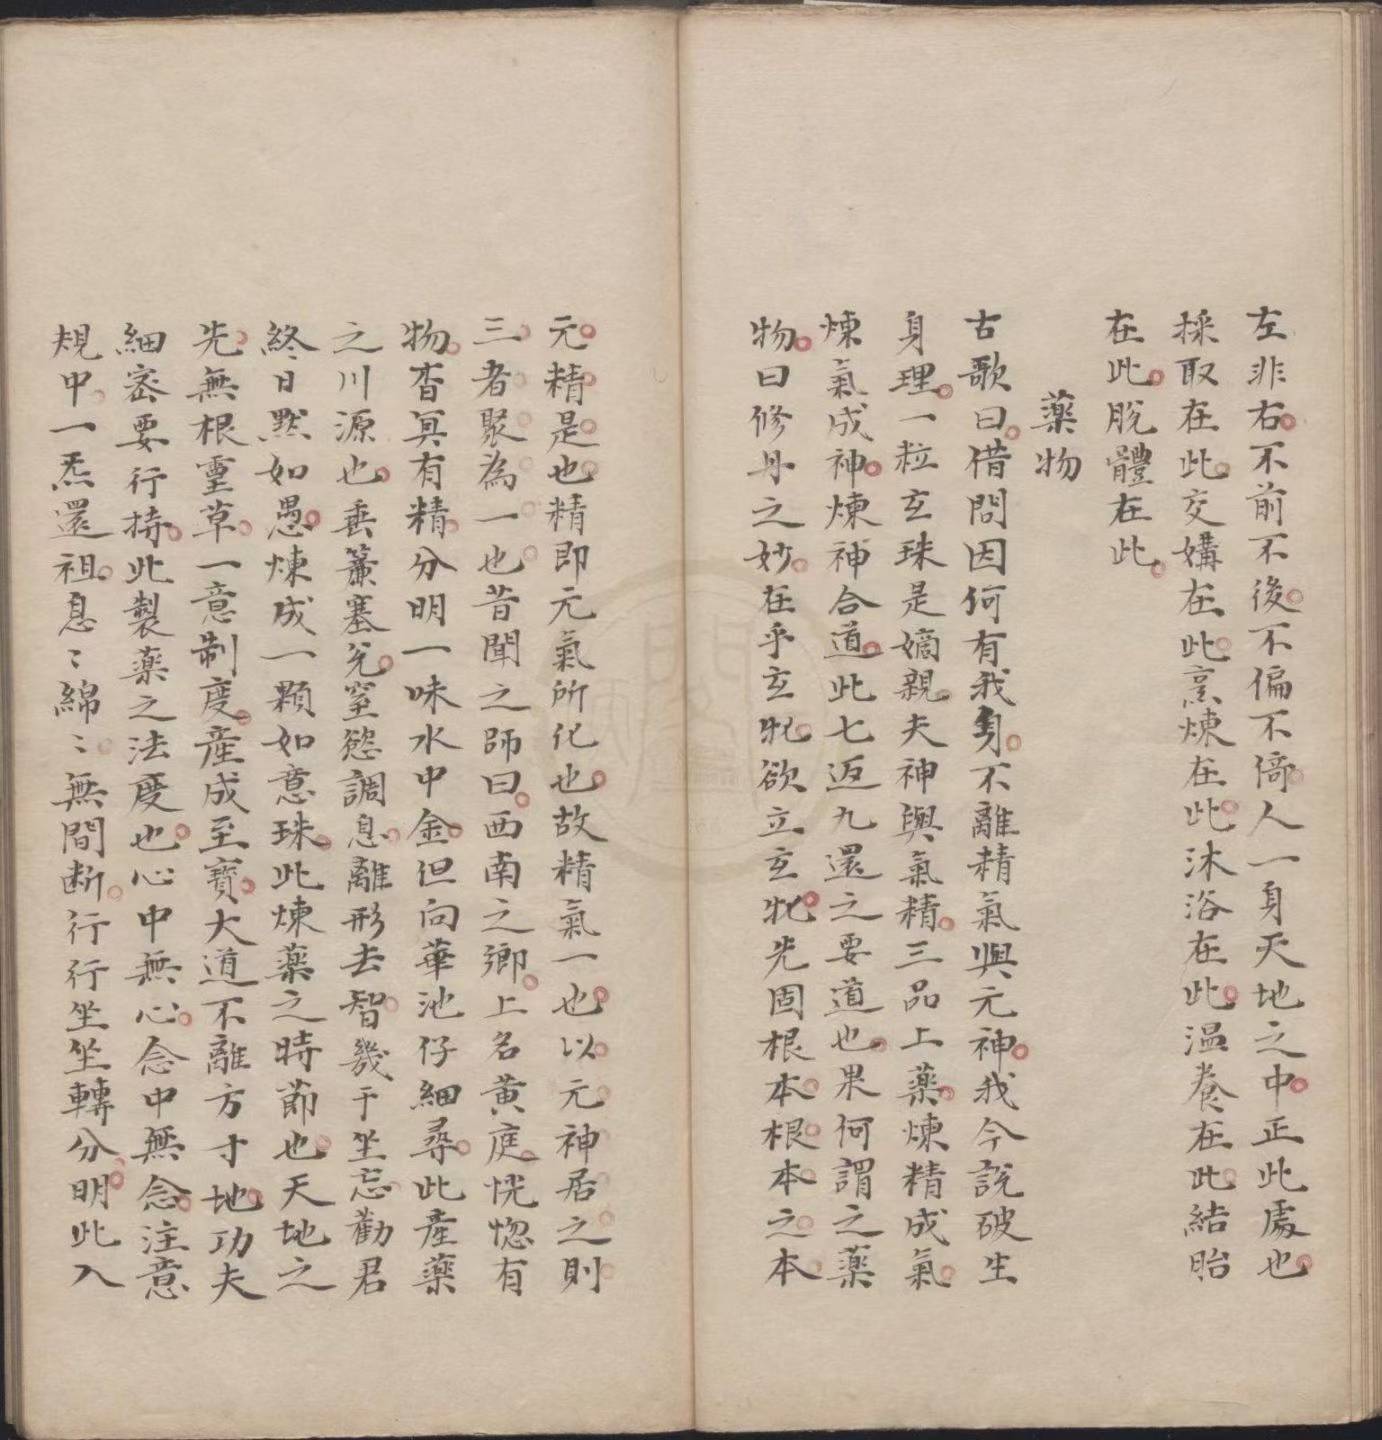 左非右不前不後不偏不倚人一身天地之中正此處也
採取在此交媾在此烹煉在此沐浴在此溫養在此結胎
在此脫體在此
藥物
古歌曰借問因何有我身不離精氣與元神我今說破生
身理一粒玄珠是嫡親夫神與氣精三品上藥煉精成氣
煉氣成神煉神合道此七返九還之要道也果何謂之藥
物曰修丹之妙在乎玄牝欲立玄牝先固根本根本之本
元精是也精即元氣所化也故精氣一也以元神居之則
三者聚為一也昔聞之師曰西南之鄉上名黃庭恍惚有
物杳冥有精分明一味水中金但向華池仔細尋此產藥
之川源也垂簾塞兌窒慾調息離形去智幾于坐忘勸君
終日默如愚煉成一顆如意珠此煉藥之時節也天地之
先無根靈草一意制度產成至寶大道不離方寸地功夫
細密要行持此製藥之法度也心中無心念中無念注意
規中一炁還祖息〻綿〻無間断行行坐坐轉分明此入